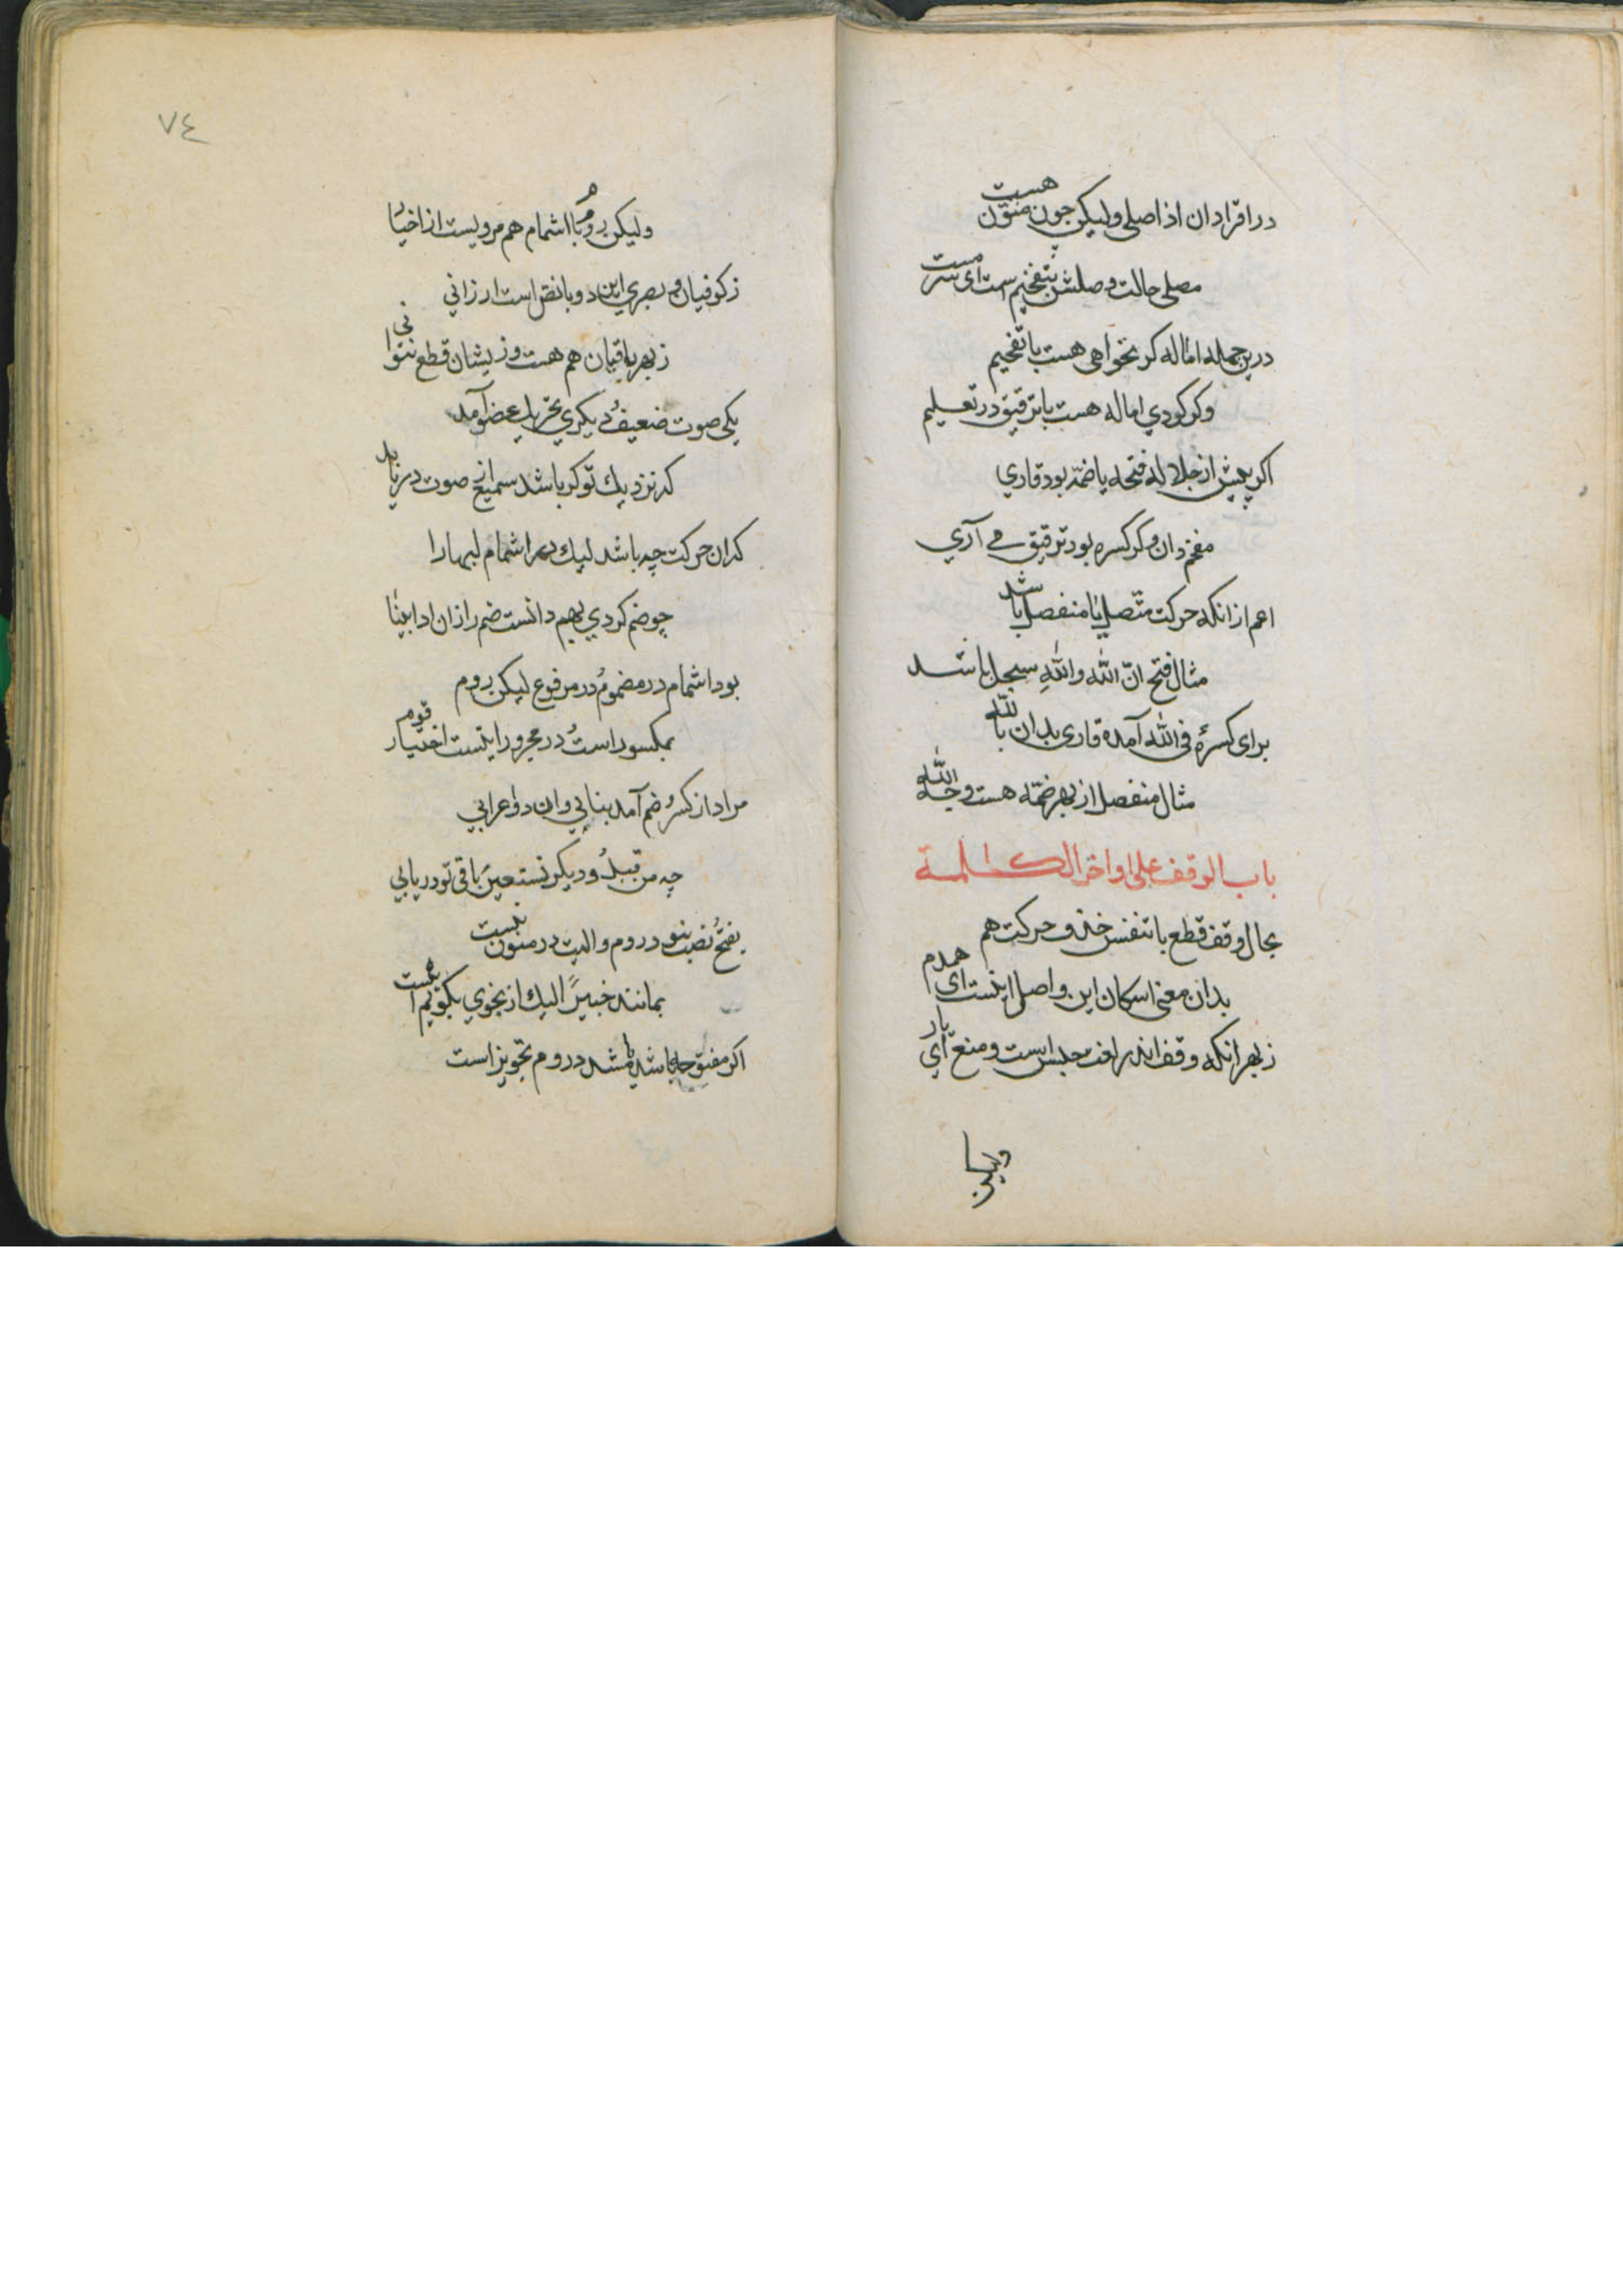 در افراد ان اذ اصلی ولیکن چون منوّن هست
مصلی حالت وصلش بتفخیم است ای سرمست
درین جمله اماله کر نخواهی هست با تفخیم
وکر کودي اماله هست با ترقیق در تعلیم
اکر پیش از جلاله فتحه یا ضمّه بود قاري
مفخم دان وکر کسره بود ترقیق می آري
اعم از انکه حرکت متّصل یا منفصل باشد
مثال فتح انّ الله والله سیجل باشد
برای کسره في الله آمده قاری بدان بالله
مثال منفصل از بهر ضمّه هست وجه الله
باب الوقف علی اواخر الکلمة
بحال وقف قطع با تنفس خذ و حرکت هم
بدان معنی اسکان این و اصل اینست ای همدم
زبهر انکه وقف اندر لغت حبس است و منع ای یار
ولیکن
٧٤
ولیکن روم با اشمام هم مرویست از اخیار
زکوفیان و بصري این دو با نص است ارزاني
زبهر باقیان هم هست وزیشان قطع نتوانی
یکی صوت ضعیف و دیکري تحریك عضو آمد
که نزدیك تو کر باشد سمیع از صوت دریابد
کدان حرکت چه باشد لیك اشمام لبها را
چو ضم کردي بهم دانست ضم را زان ادا بینا
بود اشمام در مضموم و در مرفوع لیکن روم
بمکسور است و در مجرور اینست اختیار قوم
مراد از کسر و ضم آمد بنایي وان دو اعرابي
چه من قبلُ و دیکر نستعینُ باقی تو دریابي
بفتح و نصب نبود روم والبت در منون نیست
بمانند خبیرًا لیك از نحوي بکویم
اکر مفتوحه باشد یا مشدد روم تجویز است